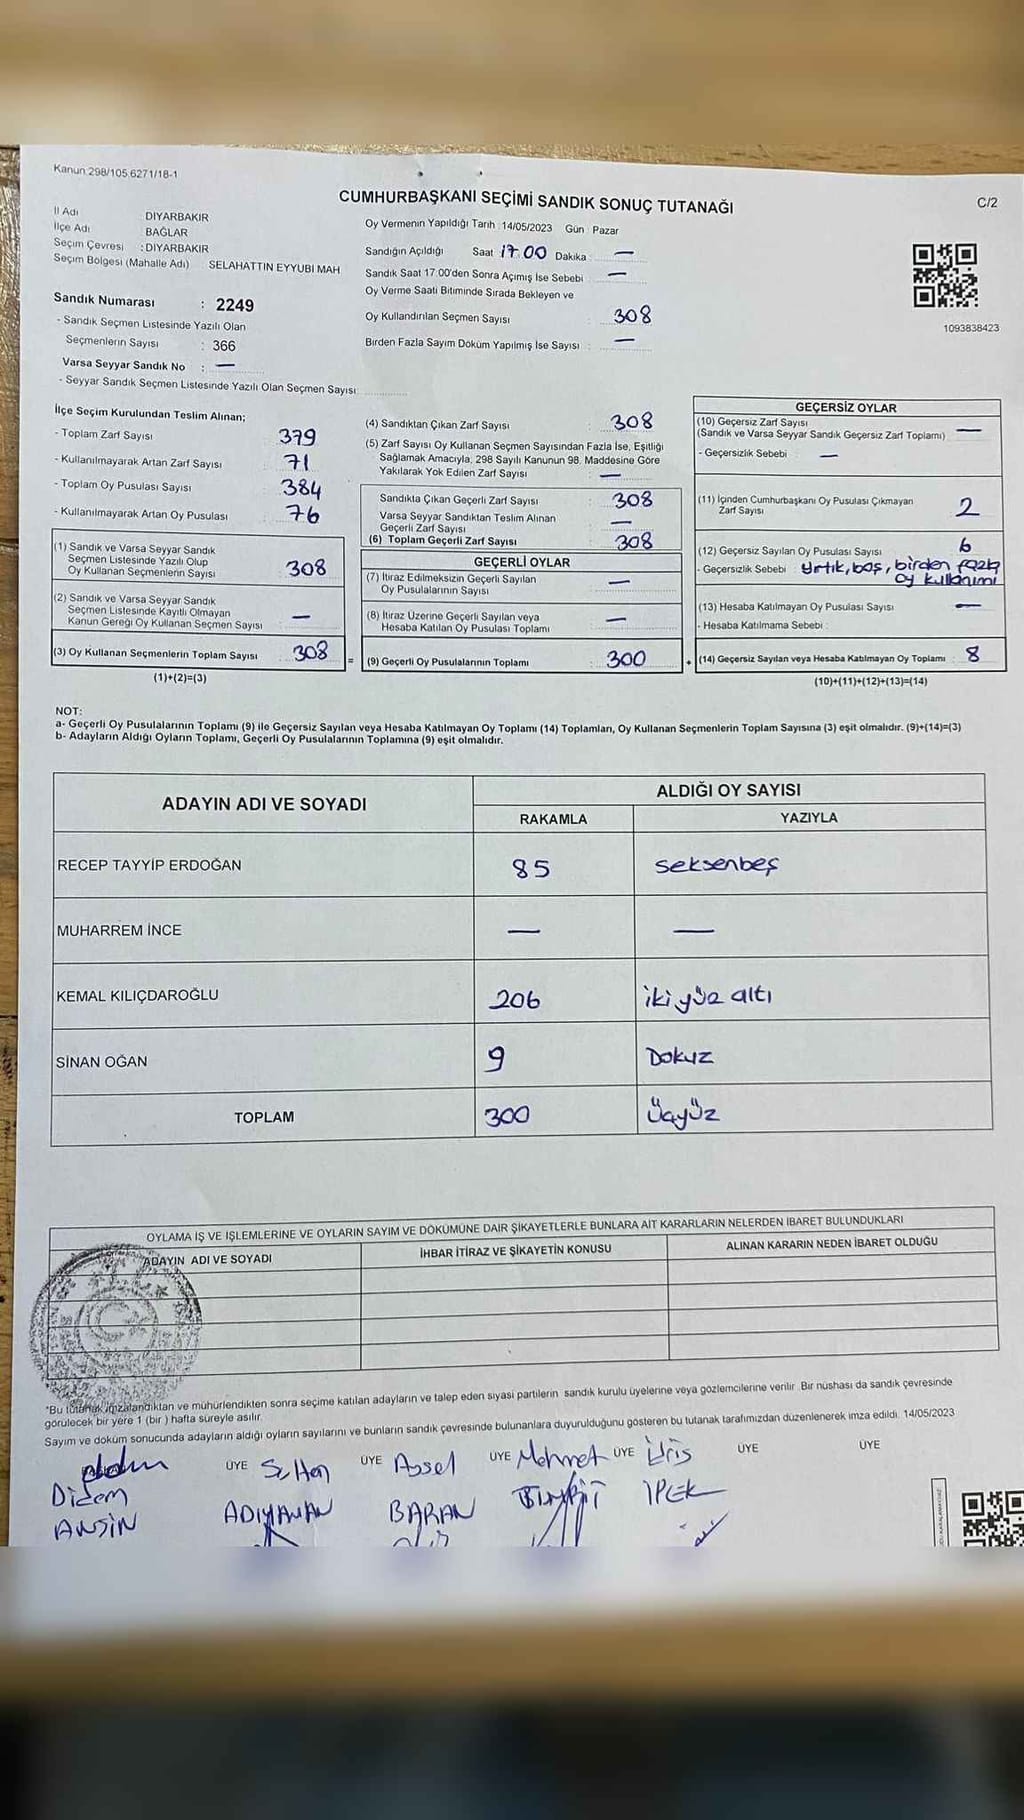 Kanun 298/105,6271/18-1
CUMHURBAŞKANI SEÇİMİ SANDIK SONUÇ TUTANAĞI
C/2
İl Adı DİYARBAKIR
İlçe Adı BAĞLAR
Seçim Çevresi : DİYARBAKIR
Seçim Bölgesi (Mahalle Adı) SELAHATTIN EYYUBI MAH
Sandık Numarası : 2249
- Sandık Seçmen Listesinde Yazılı Olan
Seçmenlerin Sayısı : 366
Varsa Seyyar Sandık No : —
- Seyyar Sandık Seçmen Listesinde Yazılı Olan Seçmen Sayısı:
Oy Vermenin Yapıldığı Tarih : 14/05/2023 Gün : Pazar
Sandığın Açıldığı Saat 17 00 Dakika : —
Sandık Saat 17.00'den Sonra Açımış İse Sebebi : —
Oy Verme Saati Bitiminde Sırada Bekleyen ve
Oy Kullandırılan Seçmen Sayısı : 308
Birden Fazla Sayım Döküm Yapılmış İse Sayısı : —
1093838423
İlçe Seçim Kurulundan Teslim Alınan;
- Toplam Zarf Sayısı : 379
- Kullanılmayarak Artan Zarf Sayısı : 71
- Toplam Oy Pusulası Sayısı : 384
- Kullanılmayarak Artan Oy Pusulası : 76
(1) Sandık ve Varsa Seyyar Sandık
Seçmen Listesinde Yazılı Olup
Oy Kullanan Seçmenlerin Sayısı : 308
(2) Sandık ve Varsa Seyyar Sandık
Seçmen Listesinde Kayıtlı Olmayan
Kanun Gereği Oy Kullanan Seçmen Sayısı : —
(3) Oy Kullanan Seçmenlerin Toplam Sayısı : 308 =
(1)+(2)=(3)
(4) Sandıktan Çıkan Zarf Sayısı : 308
(5) Zarf Sayısı Oy Kullanan Seçmen Sayısından Fazla İse, Eşitliği
Sağlamak Amacıyla, 298 Sayılı Kanunun 98. Maddesine Göre
Yakılarak Yok Edilen Zarf Sayısı : —
Sandıkta Çıkan Geçerli Zarf Sayısı : 308
Varsa Seyyar Sandıktan Teslim Alınan
Geçerli Zarf Sayısı : —
(6) Toplam Geçerli Zarf Sayısı : 308
GEÇERLİ OYLAR
(7) İtiraz Edilmeksizin Geçerli Sayılan
Oy Pusulalarının Sayısı : —
(8) İtiraz Üzerine Geçerli Sayılan veya
Hesaba Katılan Oy Pusulası Toplamı : —
(9) Geçerli Oy Pusulalarının Toplamı : 300 +
GEÇERSİZ OYLAR
(10) Geçersiz Zarf Sayısı
(Sandık ve Varsa Seyyar Sandık Geçersiz Zarf Toplamı) —
- Geçersizlik Sebebi : —
(11) İçinden Cumhurbaşkanı Oy Pusulası Çıkmayan
Zarf Sayısı 2
(12) Geçersiz Sayılan Oy Pusulası Sayısı : 6
- Geçersizlik Sebebi : Yırtık, boş, birden fazla
oy kullanımı
(13) Hesaba Katılmayan Oy Pusulası Sayısı : —
- Hesaba Katılmama Sebebi :
(14) Geçersiz Sayılan veya Hesaba Katılmayan Oy Toplamı : 8
(10)+(11)+(12)+(13)=(14)
NOT:
a- Geçerli Oy Pusulalarının Toplamı (9) ile Geçersiz Sayılan veya Hesaba Katılmayan Oy Toplamı (14) Toplamları, Oy Kullanan Seçmenlerin Toplam Sayısına (3) eşit olmalıdır. (9)+(14)=(3)
b- Adayların Aldığı Oyların Toplamı, Geçerli Oy Pusulalarının Toplamına (9) eşit olmalıdır.
ADAYIN ADI VE SOYADI
ALDIĞI OY SAYISI
RAKAMLA YAZIYLA
RECEP TAYYİP ERDOĞAN 85 seksenbeş
MUHARREM İNCE — —
KEMAL KILIÇDAROĞLU 206 iki yüz altı
SİNAN OĞAN 9 Dokuz
TOPLAM 300 Üçyüz
OYLAMA İŞ VE İŞLEMLERİNE VE OYLARIN SAYIM VE DÖKÜMÜNE DAİR ŞİKAYETLERLE BUNLARA AİT KARARLARIN NELERDEN İBARET BULUNDUKLARI
ADAYIN ADI VE SOYADI İHBAR İTİRAZ VE ŞİKAYETİN KONUSU ALINAN KARARIN NEDEN İBARET OLDUĞU
*Bu tutanak imzalandıktan ve mühürlendikten sonra seçime katılan adayların ve talep eden siyasi partilerin sandık kurulu üyelerine veya gözlemcilerine verilir. Bir nüshası da sandık çevresinde
görülecek bir yere 1 (bir ) hafta süreyle asılır.
Sayım ve döküm sonucunda adayların aldığı oyların sayılarını ve bunların sandık çevresinde bulunanlara duyurulduğunu gösteren bu tutanak tarafımızdan düzenlenerek imza edildi. 14/05/2023
ÜYE Sultan ÜYE Aysel ÜYE Mehmet ÜYE İdris ÜYE ÜYE
Didem
ADIYAMAN BARAN İPEK